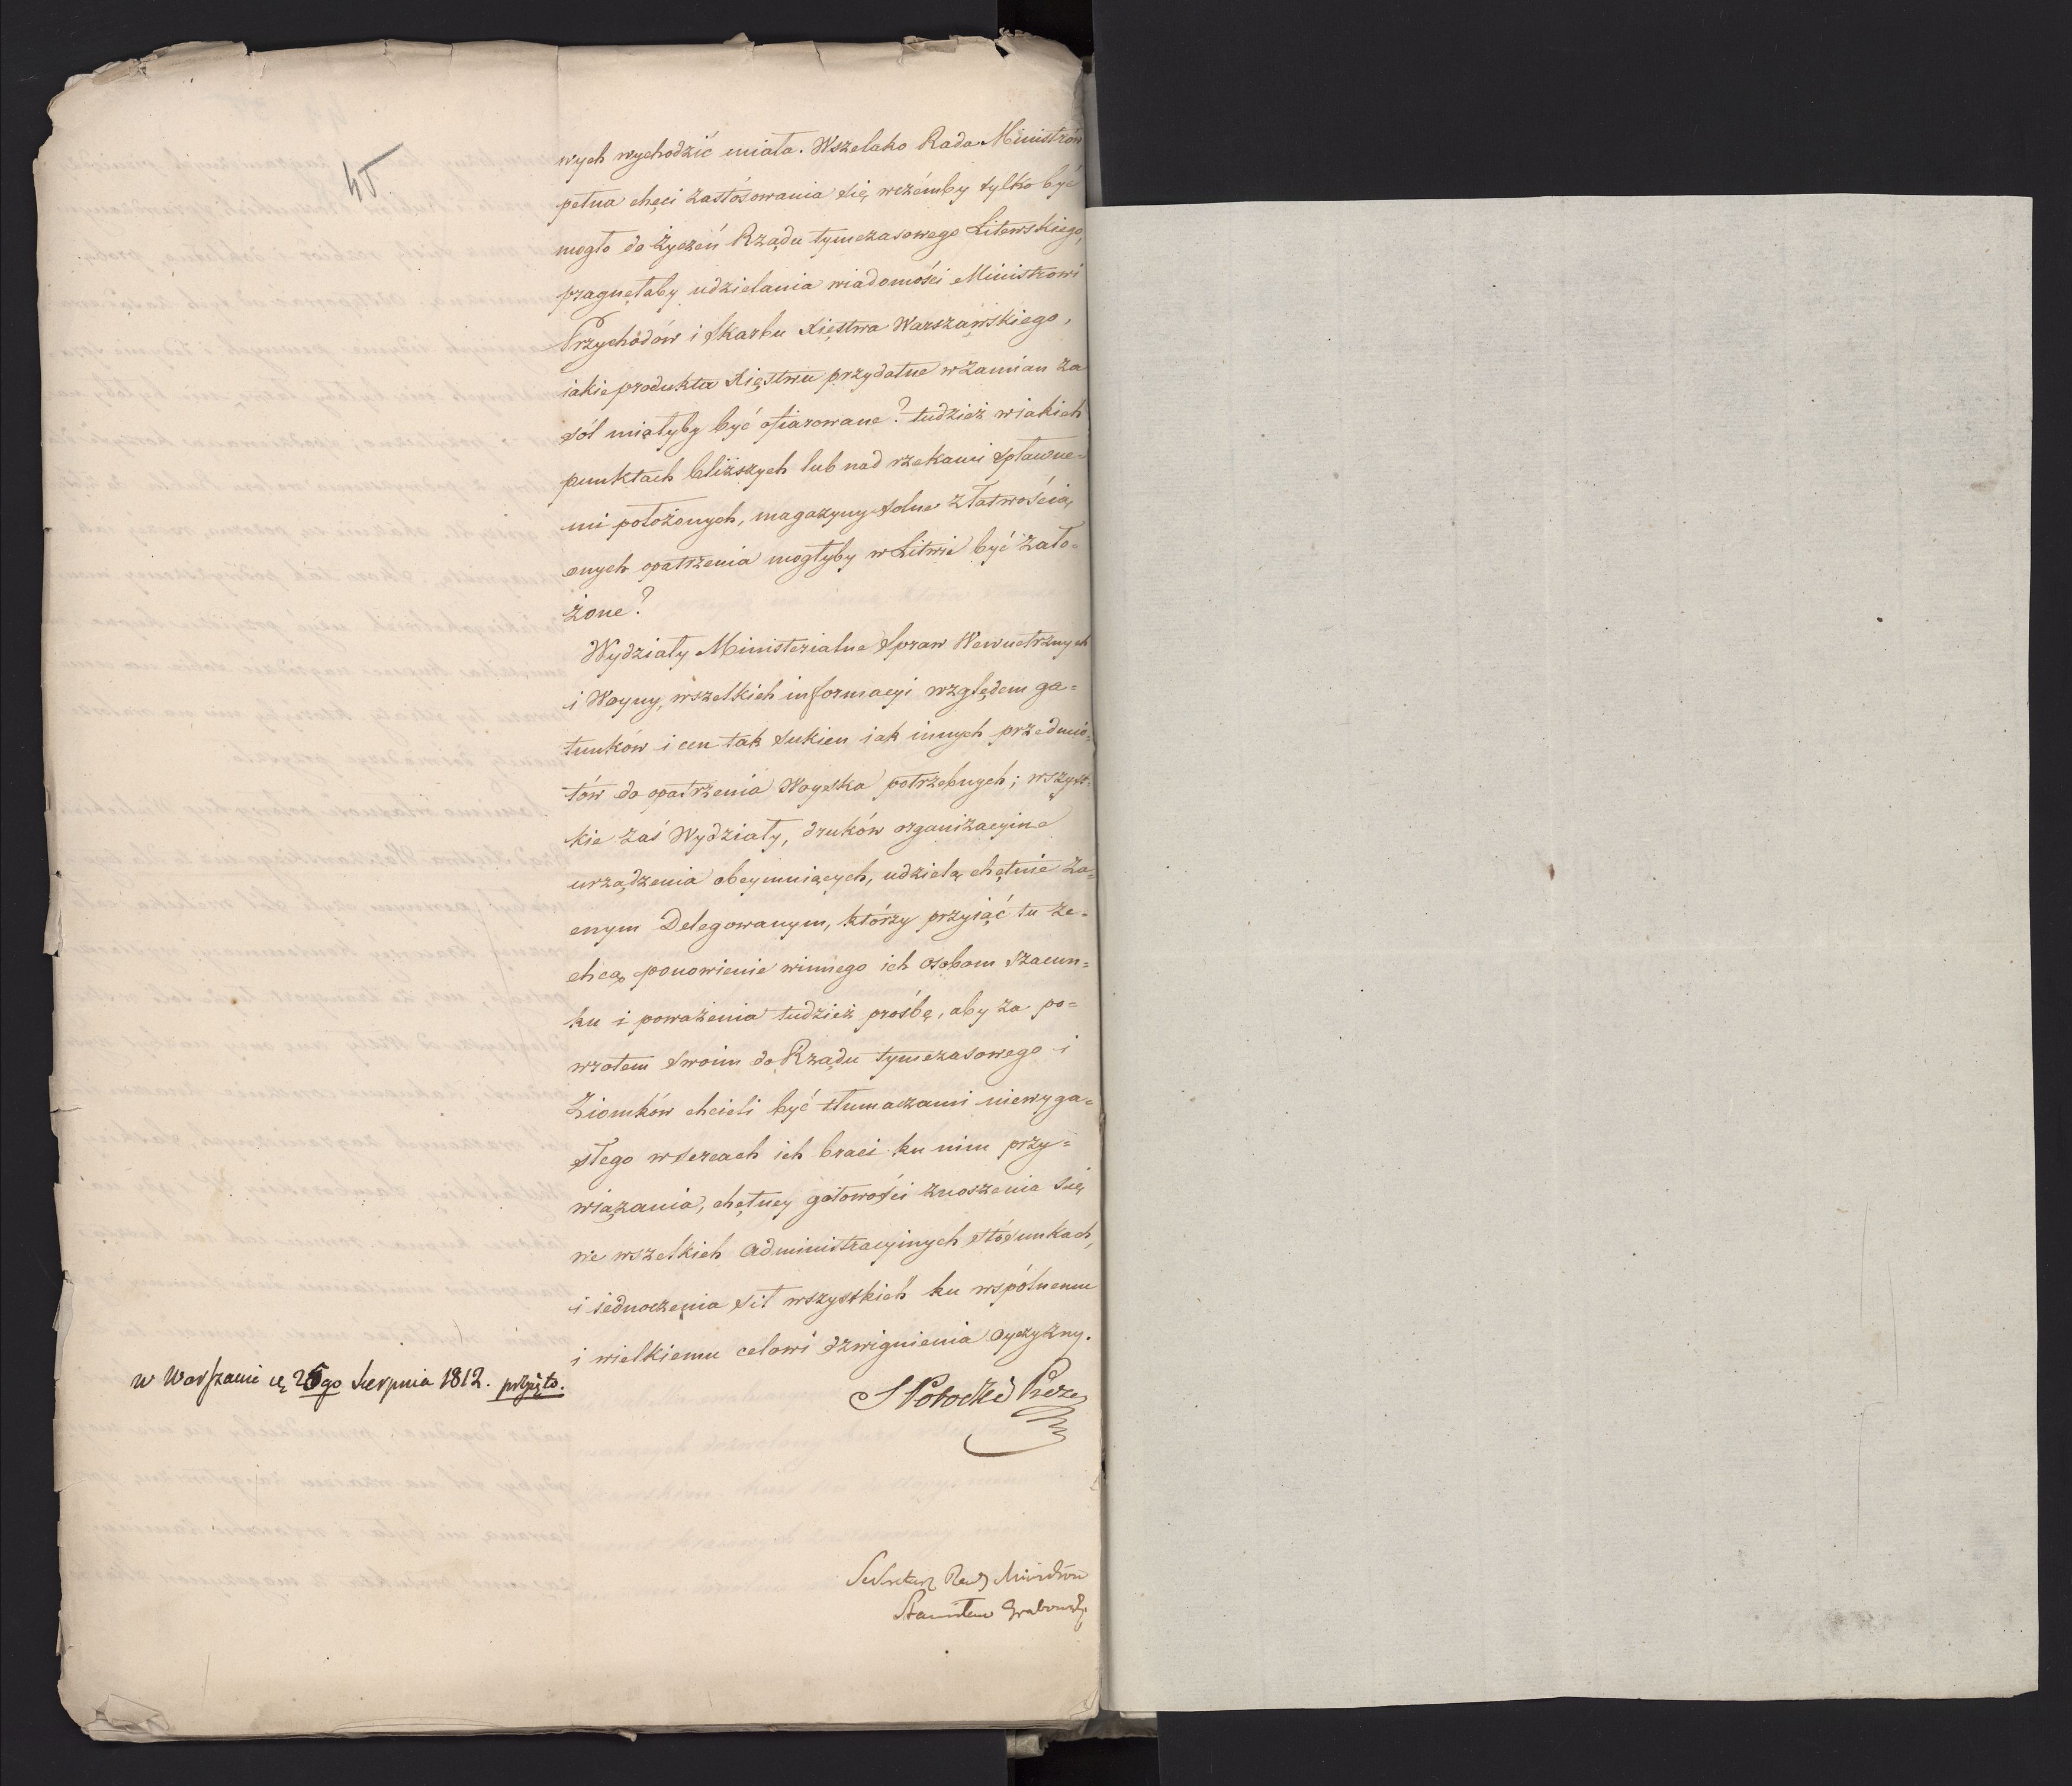 45
wych wychodzić miała. Wszelako Rada Ministrów
pełna chęci zastósowania się wczémby tylko być
mogło do życzeń Rządu tymczasowego Litewskiego,
pragnęłaby udzielania wiadomości Ministrowi
Przychodów i Skarbu Xięstwa Warszawskiego,
iakie produkta Xięstwu przydatne w zamian za
sól miałyby być ofiarowane? tudzież w iakich
punktach bliższych lub nad rzekami spławne=
mi położonych, magazyny solne z łatwością
onych opatrzenia mogłyby w Litwie być zało=
żone?
Wydziały Ministerialne Spraw Wewnetrznych
i Woyny, wszelkich informacyi względem ga=
tunków i cen tak sukien iak innych przedmio=
tów do opatrzenia Woyska potrzebnych; wszyst=
kie zaś Wydziały, druków organizacyine
urządzenia obeymuiących, udzielą chętnie Za=
cnym Delegowanym, którzy przyiąć tu ze=
chcą ponowienie winnego ich osobom szacun=
ku i poważenia tudzież prośbę, aby za po=
wrotem swoim do Rządu tymczasowego i
Ziomków chcieli być tłumaczami niewyga=
słego w sercach ich braci ku nim przy=
wiązania, chętney gotowości znoszenia się
we wszelkich administracyinych stósunkach,
i iednoczenia sił wszystkich ku wspólnemu
i wielkiemu celowi dzwignienia oyczyzny.
w Warszawie 25go Sierpnia 1812. przyięto.
S Potocki Prezes
Sekretarz Rady Ministrów
Stanisław Grabowski